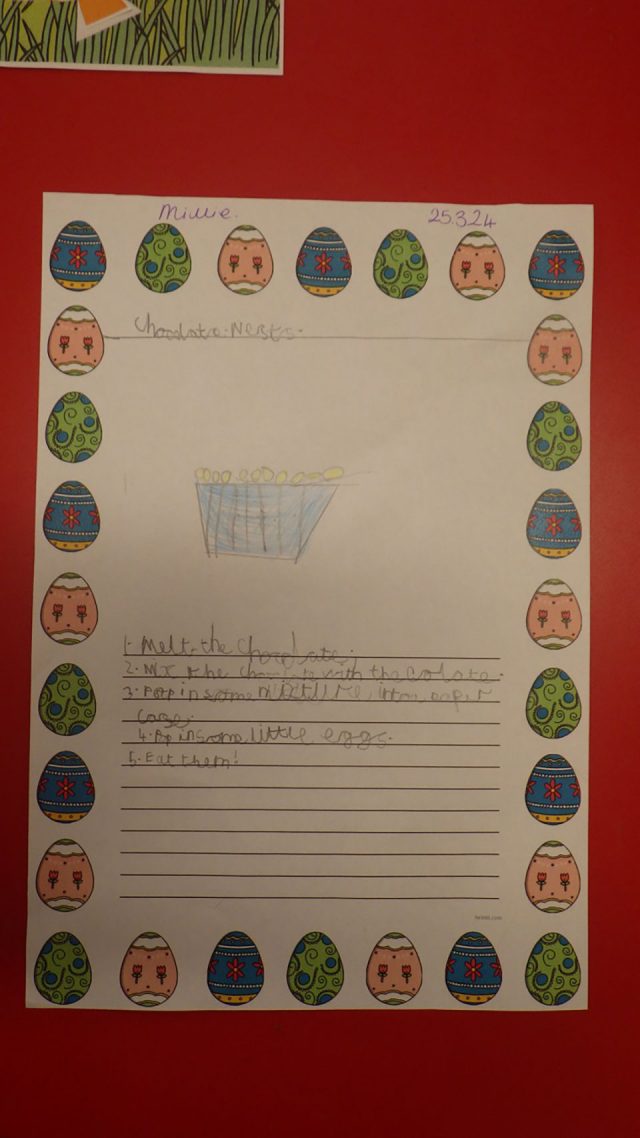 Millie.
25.3.24
Chocolate. Nests.
1. Melt the Chocolate.
2. Mix the with the colate.
3. Pop in some mixture into a paper
case.
4. Pop in some little eggs.
5. Eat them!
twinkl.com